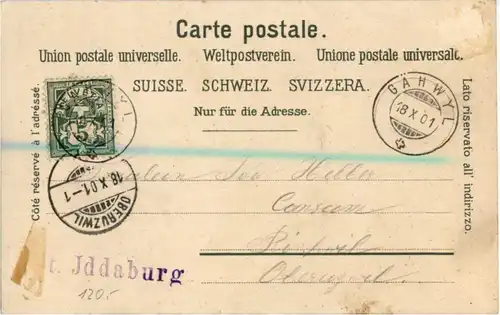 Carte postale.
Union postale universelle. Weltpostverein. Unione postale universale.
SUISSE. SCHWEIZ. SVIZZERA.
Nur für die Adresse.
Côté réservé à l'adresse.
Lato riservato all' indirizzo.
GÄHWYL
18 X 01
OBERUZWIL
18.X.01.-1
Heller
Oberuzwil
t. Iddaburg
120.-